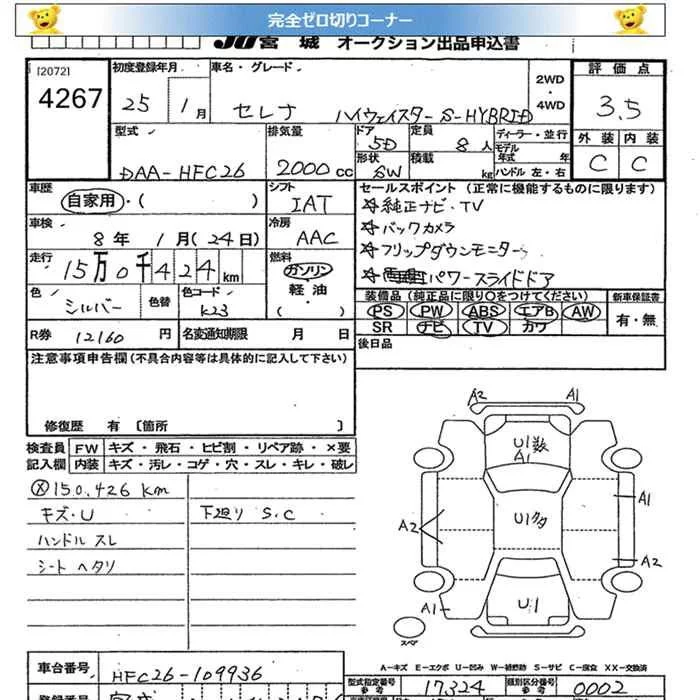 完全ゼロ切りコーナー
JU宮 城 オークション出品申込書
[2072]
4267
初度登録年月
25 1月
車名・グレード
セレナ ハイウェイスター S-HYBRID
2WD・4WD
評価点
3.5
外装 内装
C C
型式
DAA-HFC26
排気量
2000cc
ドア
5D
定員
8人
ディーラー・並行
モデル年式 年
形状
SW
積載 kg
ハンドル 左・右
車歴
自家用・( )
シフト
IAT
セールスポイント (正常に機能するものに限ります)
☆純正ナビ・TV
☆バックカメラ
☆フリップダウンモニター
パワースライドドア
車検
8年 1月(24日)
冷房
AAC
走行
15万0千424km
燃料
ガソリン
軽油・
( )
色
シルバー
色替
色コード
K23
装備品(純正品に限り○をつけてください)
PS PW ABS エアB AW
SR ナビ TV カワ
新車保証書
有・無
R券 12160円
名変通知期限 月 日
後日品
注意事項申告欄(不具合内容等は具体的に記入して下さい)
修復歴 有〔箇所 〕
検査員記入欄
FW キズ・飛石・ヒビ割・リペア跡・×要
内装 キズ・汚レ・コゲ・穴・スレ・キレ・破レ
Ⓧ150,426km
キズ・U
下廻り S.C
ハンドル スレ
シート ヘタリ
A2 A1
U1数
A1
A1
A2
U1多
A2
A1
U1
スペア
A-キズ E-エクボ U-凹み W-補修跡 S-サビ C-腐食 XX-交換済
車台番号
HFC26-109936
型式指定番号
参考
17324
類別区分番号
参考
0002
登録番号